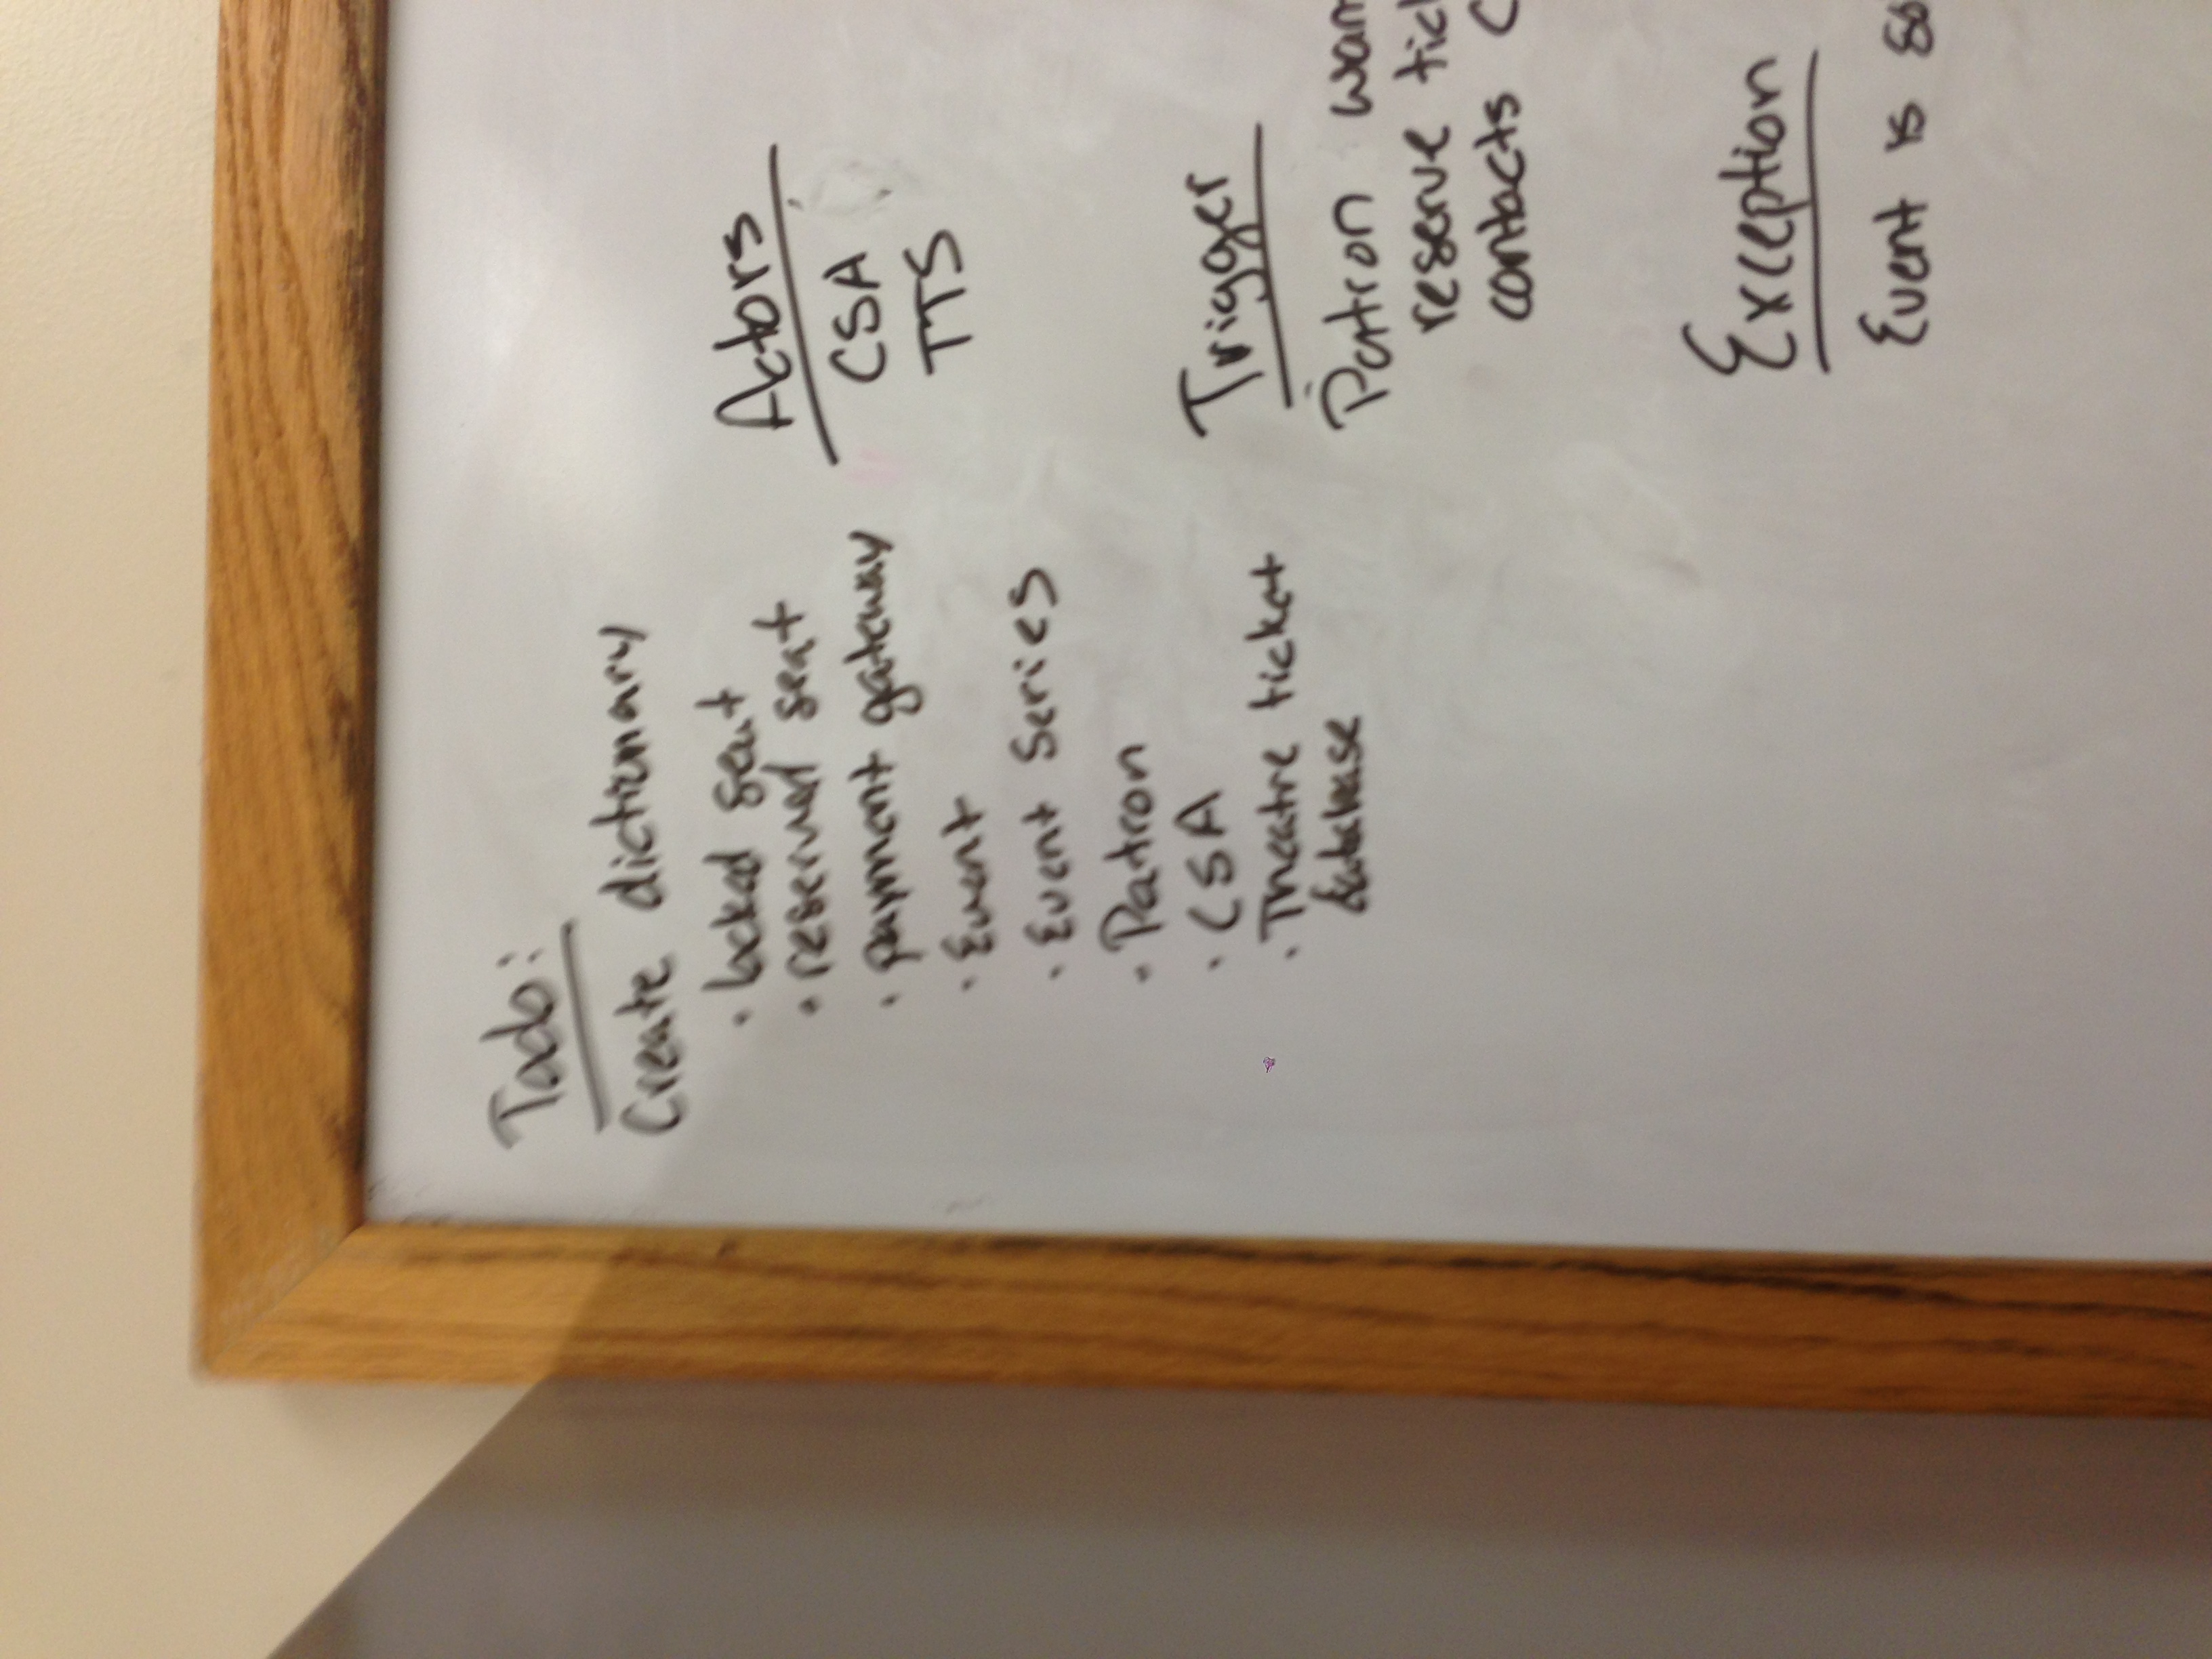 Todo:
Create dictionary
· locked seat
· reserved seat
· payment gateway
· Event
· Event Series
· Patron
· CSA
· Theatre ticket
database
Actors
CSA
TTS
Trigger
Patron wan
reserve tick
contacts C
Exception
Event is so